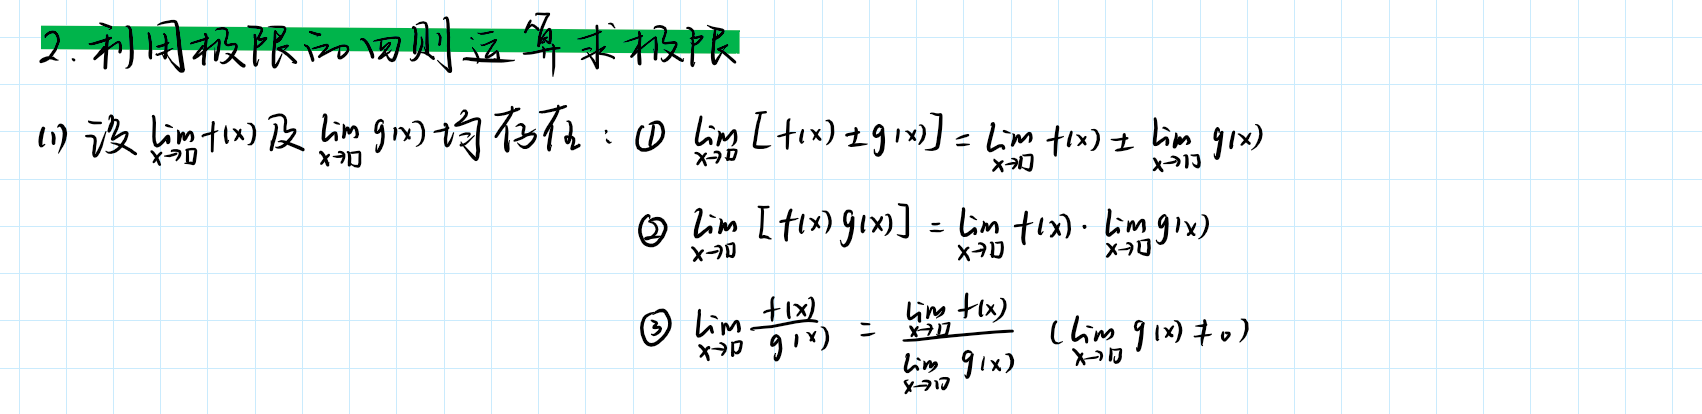 2. 利用极限的四则运算求极限
(1) 设 lim_{x→□} f(x) 及 lim_{x→□} g(x) 均存在: ① lim_{x→□} [f(x) ± g(x)] = lim_{x→□} f(x) ± lim_{x→□} g(x)
② lim_{x→□} [f(x) g(x)] = lim_{x→□} f(x) · lim_{x→□} g(x)
③ lim_{x→□} \frac{f(x)}{g(x)} = \frac{lim_{x→□} f(x)}{lim_{x→□} g(x)} (lim_{x→□} g(x) ≠ 0)